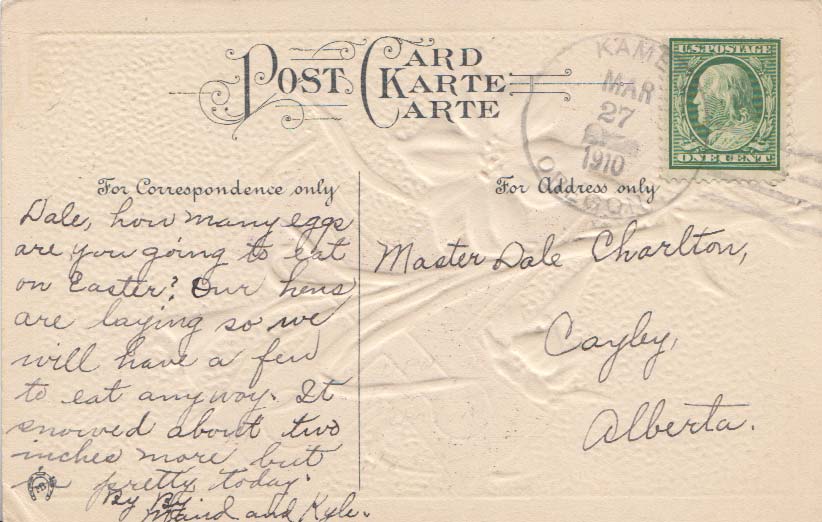 POST CARD
KARTE
CARTE
KAME
MAR
27
1910
OREGON
U.S. POSTAGE
ONE CENT
For Correspondence only
For Address only
Dale, how many eggs
are you going to eat
on Easter? Our hens
are laying so we
will have a few
to eat anyway. It
snowed about two
inches more but
is pretty today.
By By
Maud and Kyle.
Master Dale Charlton,
Cayley,
Alberta.